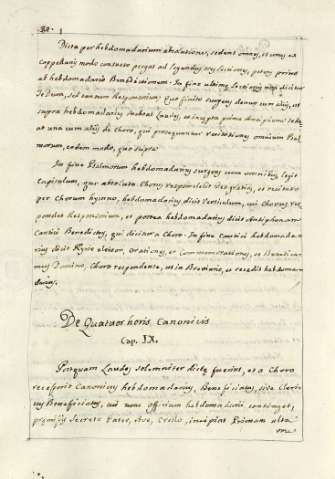 Dicta per hebdomadarium absolutione, sedent omnes, et unus ex
Cappellanis modo consueto pergat ad legendas tres lectiones, petens prius
ab hebdomadario Benedictionem. In fine ultimę lectionis nisi dicitur
Te Deum, sed tantum Responsorium; Quo finito surgens denuo cum alijs, ut
supra hebdomadarius incohat Laudes, et incepta prima Antiphona sedeat
at una cum alijs de Choro, qui prosequuntur recitationem omnium Psal
morum, eodem modo, quo supra.
In fine Psalmorum hebdomadarius surgens cum omnibus legit
Capitulum, quo absoluto Chorus respondeat Deo gratias, et recitato
per Chorum hymno, hebdomadarius dicit Versiculum, cui Chorus res
pondet Responsorium, et postea hebdomadarius dicit Antiphonam
Cantici Benedictus, qui dicitur a Choro. In fine Cantici hebdomada
rius dicit Kyrie eleison, Orationem, et Commemorationes, et Benedica
mus Domino, Choro respondente, ut in Breviario, et recedit hebdoma
darius.
De Quatuor horis Canonicis
Cap. IX.
Postquam Laudes solemniter dictę fuerint, et a Choro
recesserit Canonicus hebdomadarius, Beneficiatus, sive Cleri
cus Beneficiatus, cui tunc officium hebdomadarii continget,
pręmissis secreto Pater, Ave, Credo, incipiat Primam alta
voce